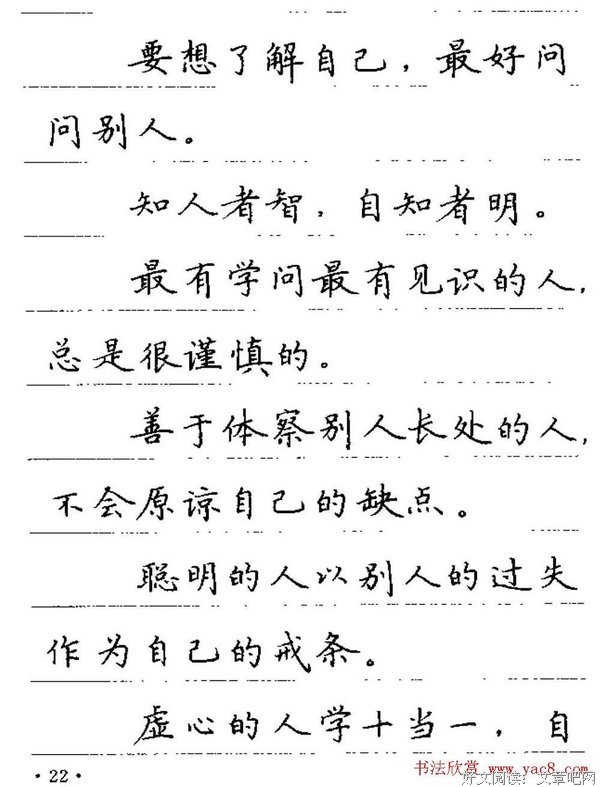 要想了解自己，最好问
问别人。
知人者智，自知者明。
最有学问最有见识的人，
总是很谨慎的。
善于体察别人长处的人，
不会原谅自己的缺点。
聪明的人以别人的过失
作为自己的戒条。
虚心的人学十当一，自
·22·
书法欣赏 www.yac8.com
好文阅读：文章吧网